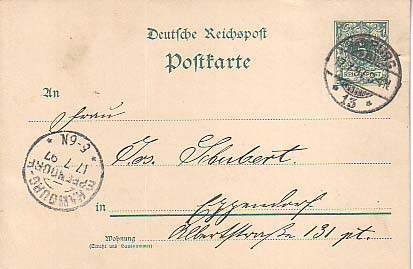 Deutsche Reichspost
Postkarte
An
Frau
Jos. Schubert.
in Eppendorf
Wohnung Albertstraße 131 pt.
(Straße und Hausnummer)
HAMBURG
* 13 *
HAMBURG
EPPENDORF
17.7.97
* 5-6N